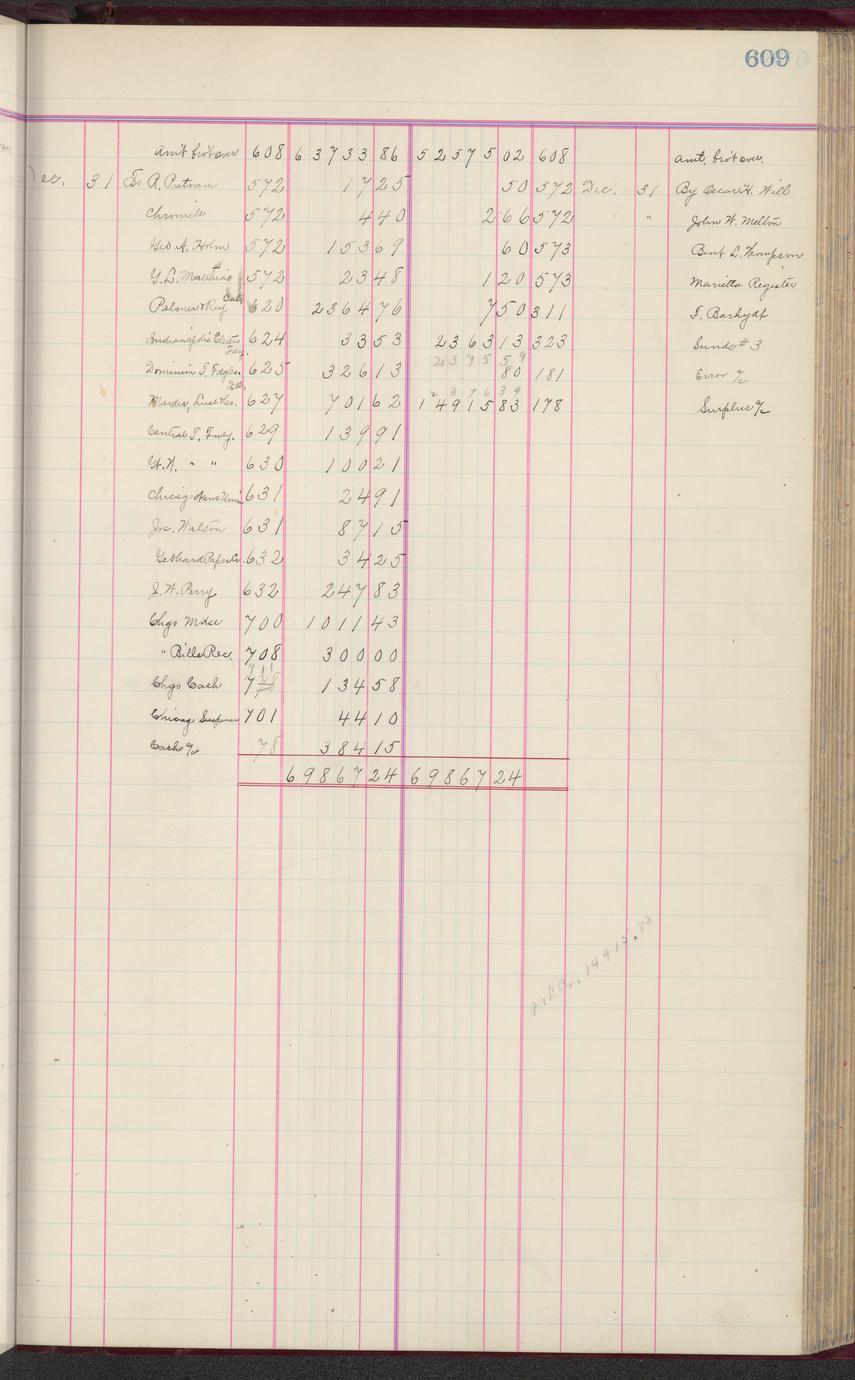 609
Am't bro't over 608 63733 86 52575 02 608 Amt. bro't over.
Dec. 31 To R. Putnam 572 17 25 50 572 Dec. 31 By Oscar H. Will
Chronicle 572 4 40 2 66 572 " John W. Melton
Geo A. Holm 572 153 69 60 573 Bent L. Thompson
Y. L. 572 23 48 1 20 573 Marietta Register
Palmer & Rey 620 2364 76 7 50 311 T. Barhydt
Indianap's Electro Fdy. 624 33 53 2363 13 323 Sunds # 3
2375 59
Dominion T. Fdg Co. 625 326 13 80 181 Error a/c
2376 39
Marder, Luse & Co. 627 701 62 14915 83 178 Surplus a/c
Central T. Fndy. 629 139 91
St. N. " " 630 100 21
Chicago News Union 631 24 91
Jos. Watson 631 87 15
Gebhard Paper Co. 632 34 25
J. W. Perry 632 247 83
Chgo Mdse 700 1011 43
" Bills Rec. 708 300 00
Chgo Cash 711 134 58
Chicago Suspense 701 44 10
Cash a/c 78 384 15
69867 24 69867 24
P. & L. Cr. 14915.83